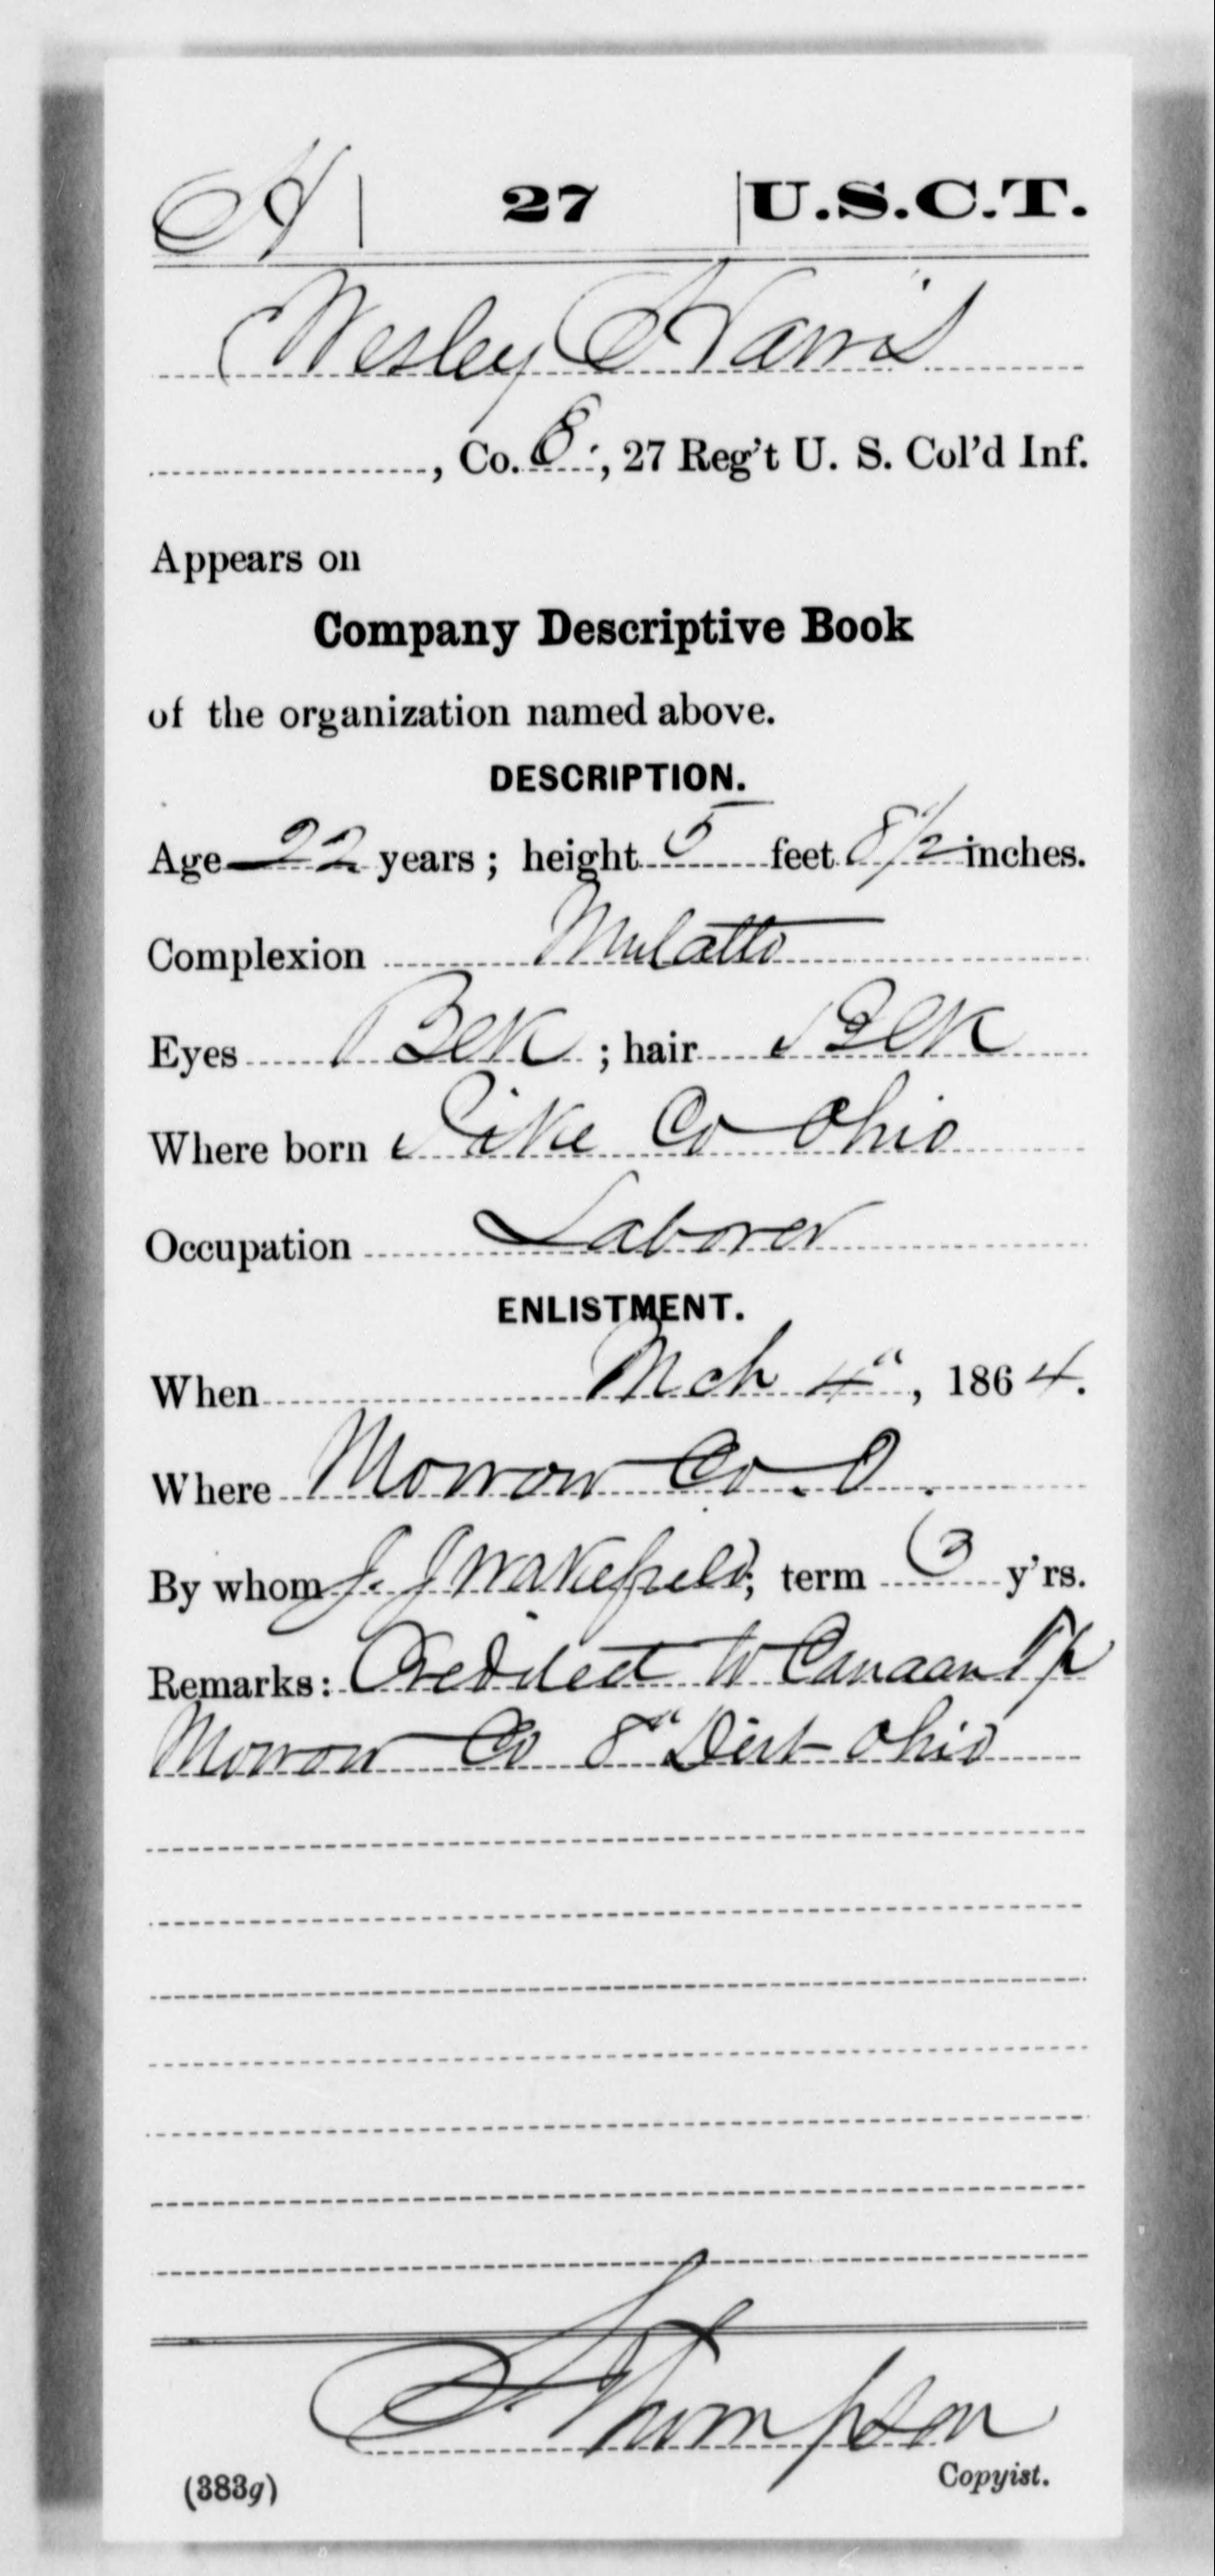 H | 27 | U.S.C.T.
Wesley Harris
, Co. E, 27 Reg't U. S. Col'd Inf.
Appears on
Company Descriptive Book
of the organization named above.
DESCRIPTION.
Age 22 years; height 5 feet 8 1/2 inches.
Complexion Mulatto
Eyes Blk; hair Blk
Where born Pike Co Ohio
Occupation Laborer
ENLISTMENT.
When Mch 4", 1864.
Where Morrow Co. O.
By whom J. J Wakefield; term 3 y'rs.
Remarks: Credited to Canaan Tp
Morrow Co 8" Dist Ohio
Thompson
(383g) Copyist.